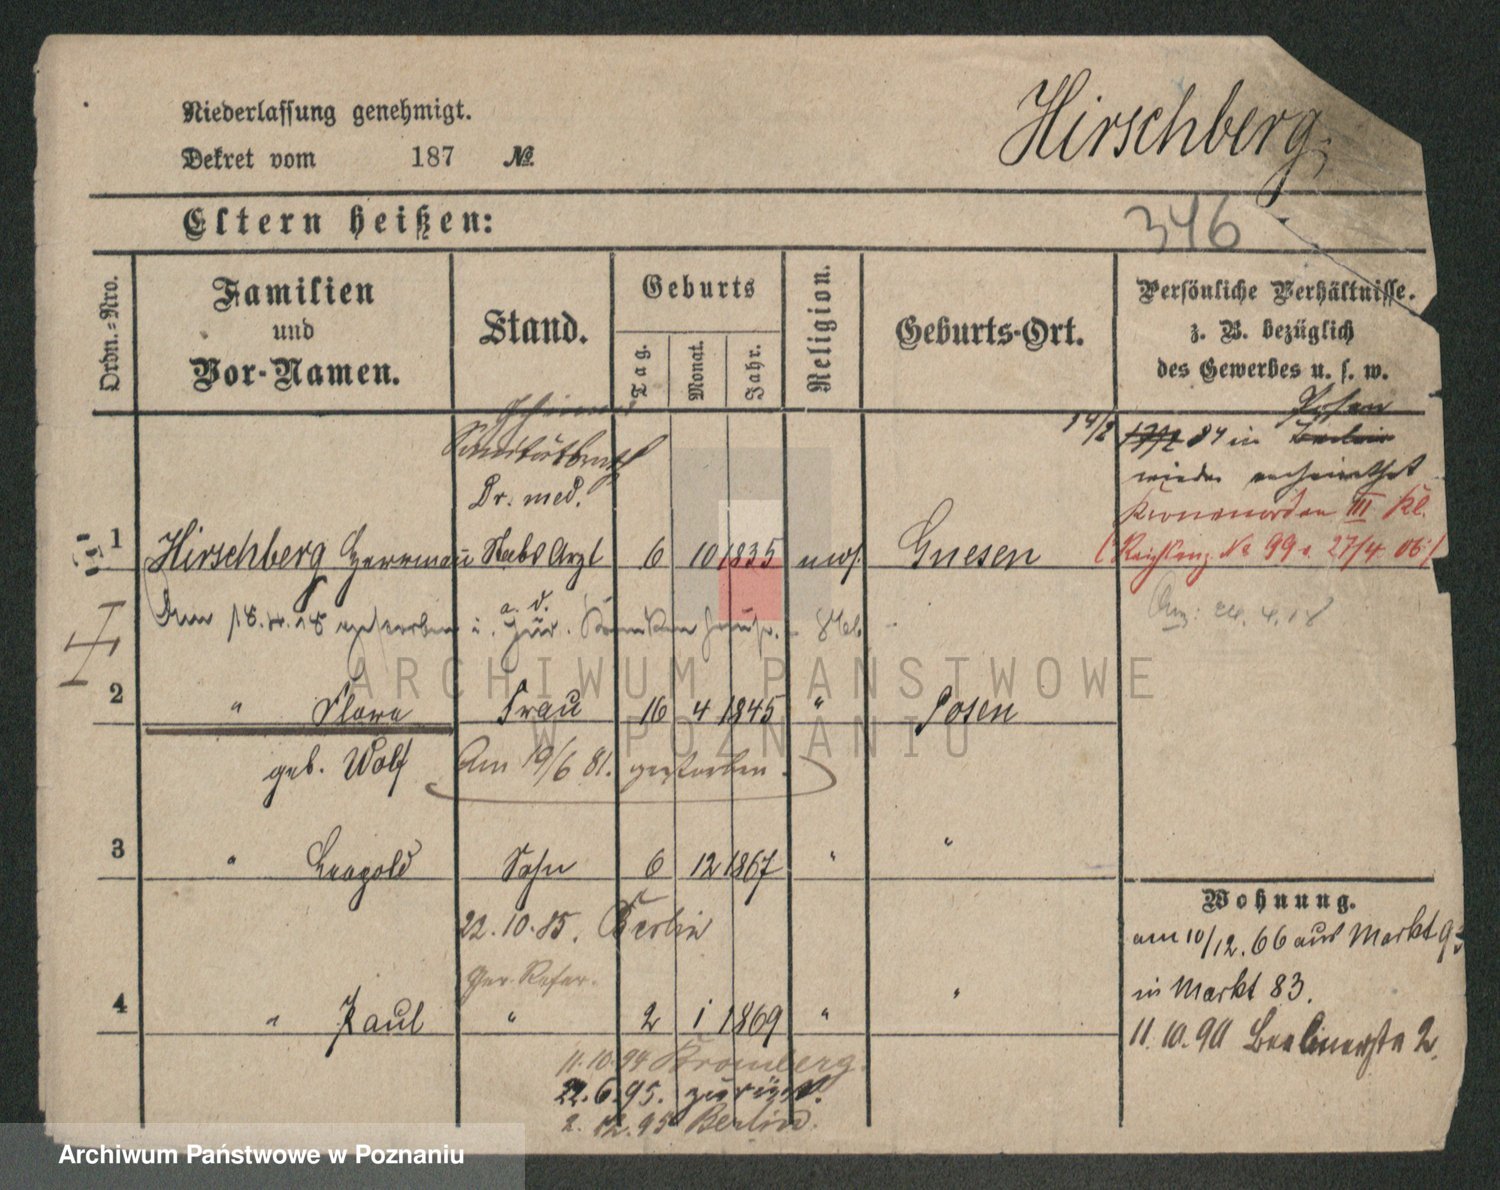 Niederlassung genehmigt.
Hirschberg
Dekret vom 187 №
Eltern heißen:
346
Ordn.=Nro.
Familien
und
Vor-Namen.
Stand.
Geburts
Tag.
Monat.
Jahr.
Religion.
Geburts-Ort.
Persönliche Verhältnisse.
z. B. bezüglich
des Gewerbes u. s. w.
Geheimer
Sanitätsrath
Dr. med.
Posen
14/2 17/2 84 in Berlin
wieder verheirathet
Kronenorden III Kl.
1 Hirschberg Herrmann Stabs Arzt 6 10 1835 mos. Gnesen
(Reichsanz. No 99 v. 27/4 06)
Am 18.4.18 gestorben i. a. d.
24.4.18
2 " Flora Frau 16 4 1845 " Posen
geb. Wolf Am 19/6 81. gestorben.
3 " Leopold Sohn 6 12 1867 " "
22.10.85. Berlin
Ger. Refer.
4 " Paul " 2 1 1869 " "
11.10.94 Bromberg.
22.6.95. zurück.
2.12.95 Berlin.
Wohnung.
am 10/12.66 aus Markt 9
in Markt 83.
11.10.90 Berlinerstr 2.
ARCHIWUM PAŃSTWOWE
W POZNANIU
Archiwum Państwowe w Poznaniu